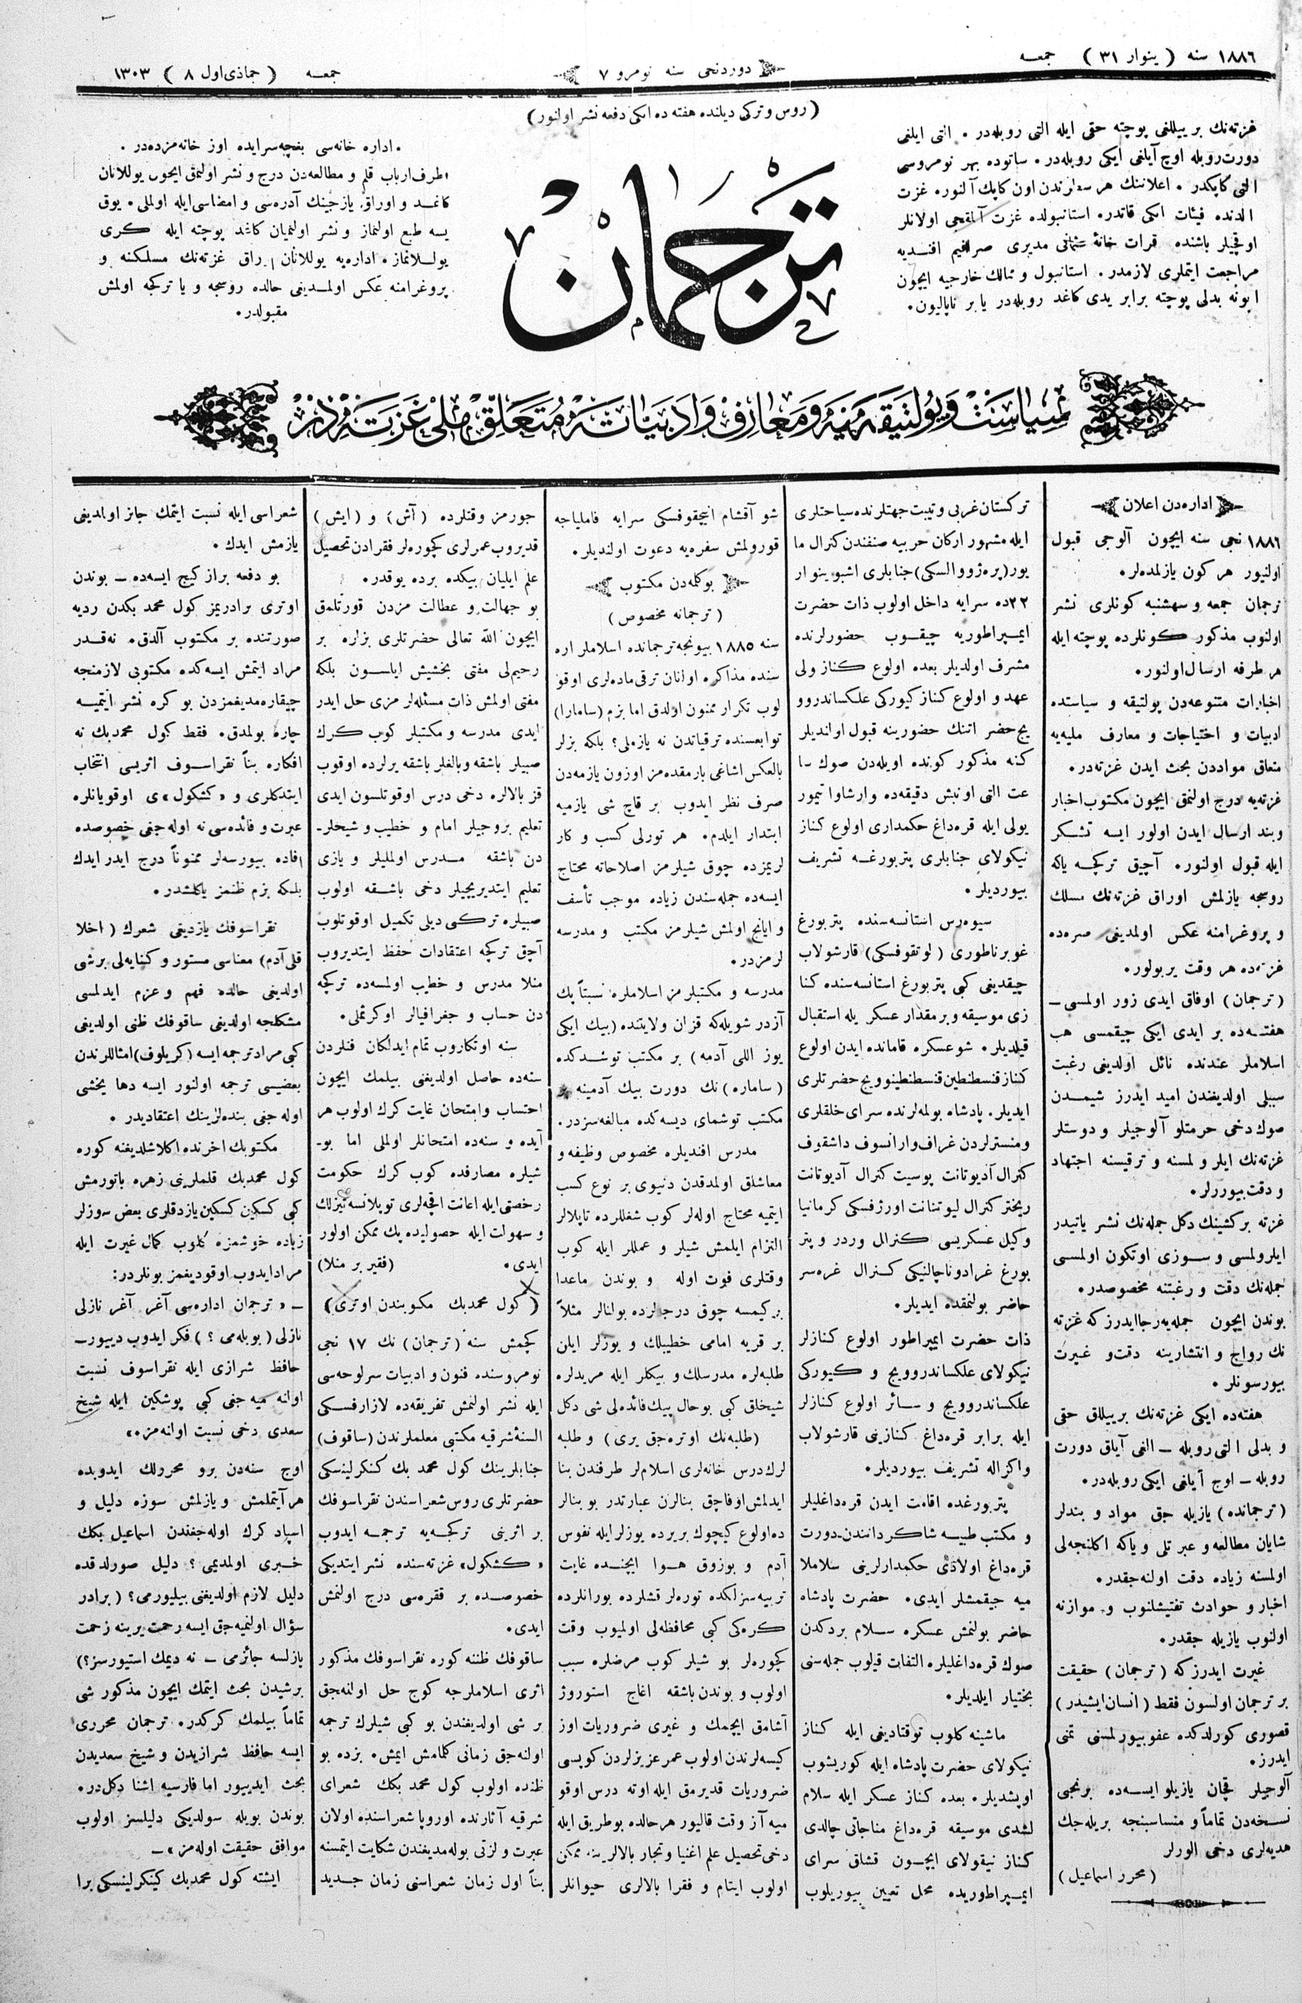 ١٨٨٦ سنه ( ينوار ٣١ ) جمعه
دوردنجى سنه نومرو ٧
جمعه ( جماذى اول ٨ ) ١٣٠٣
(روس و تركى ديلنده هفته ده ايكى دفعه نشر اولنور)
غزته‌نك بر ييللغى پوچته حقى ايله التى روبله‌در . التى ايلغى
دورت روبله اوچ آيلغى ايكى روبله‌در . ساتوده بهر نومروسى
التى كاپكدر . اعلاننك هر سطرندن اون كاپك آلنور . غزت
الدنده فيئات ايكى قاتدر . استانبولده غزت آلمقجى اولانلر
اوقچيلر باشنده قرات خانهٔ عثمانى مديرى صرافيم افنديه
مراجعت ايتملرى لازمدر . استانبول و ممالك خارجيه ايچون
ابونه بدلى پوچته برابر يدى كاغد روبله‌در يا بر ناپاليون .
ترجمان
. اداره خانه‌سى بغچه‌سرايده اوز خانه‌مزده‌در .
طرف ارباب قلم و مطالعه‌دن درج و نشر اولنمق ايچون يوللانان
كاغد و اوراق يازجينك آدره‌سى و امضاسى ايله اولملى . يوق
يسه طبع اولنماز و نشر اولنميان كاغد پوچته ايله كرى
يوللانماز . اداره‌يه يوللانان اوراق غزته‌نك مسلكنه و
پروغرامنه عكس اولمديغى حالده روسجه و يا تركجه اولمش
مقبولدر .
سياست و پولتيقه‌يه و معارف و ادبياته متعلق ملى غزته‌مزدر
اداره‌دن اعلان
١٨٨٦ نجى سنه ايچون آلوجى قبول
اولنيور هر كون يازلمده‌لر .
ترجمان جمعه و سهشنبه كونلرى نشر
اولنوب مذكور كونلرده پوچته ايله
هر طرفه ارسال اولنور .
اخبارات متنوعه‌دن پولتيقه و سياستده
ادبيات و احتياجات و معارف مليه‌يه
متعلق موادن بحث ايدن غزته‌در .
غزته‌يه درج اولنمق ايچون مكتوب اخبار
و بند ارسال ايدن اولور ايسه تشكر
ايله قبول اولنور . آچيق تركچه ياكه
روسجه يازلمش اوراق غزته‌نك مسلك
و پروغرامنه عكس اولمديغى صره‌ده
غزته‌ده هر وقت ير بولور .
(ترجمان) اوفاق ايدى زور اولمسى ــ
هفته‌ده بر ايدى ايكى چيقمسى هب
اسلاملر عندنده نائل اولديغى رغبت
سببلى اولديغندن اميد ايدرز شيمدن
صوك دخى حرمتلو آلوجيلر و دوستلر
غزته‌نك ايلرولمسنه و ترقيسنه اجتهاد
و دقت بيوررلر .
غزته بر كشينك دكل جمله‌نك نشر ياتيدر
ايلرولمسى و سوزى اوتكون اولمسى
جمله‌نك دقت و رغبتنه مخصوصدر .
بوندن ايچون جمله‌يه رجا ايدرز كه غزته
نك رواج و انتشارينه دقت و غيرت
بيورسونلر .
هفته‌ده ايكى غزته‌نك بر ييللق حقى
و بدلى التى روبله ــ التى آيلق دورت
روبله ــ اوچ آيلغى ايكى روبله‌در .
(ترجمانده) يازيله جق مواد و بندلر
شايان مطالعه و عبرتلى و ياكه اكلنجه‌لى
اولمسنه زياده دقت اولنه‌جقدر .
اخبار و حوادث تفتيشلنوب و موازنه
اولنوب يازيله جقدر .
غيرت ايدرز كه (ترجمان) حقيقت
بر ترجمان اولسون فقط (انسان ايشيدر)
قصورى كورلدكده عفو بيورلمسنى تمنى
ايدرز .
آلوجيلر قچان يازيلو ايسه‌ده برنجى
نسخه‌دن تماماً و متناسبنجه بريله‌جك
هديه‌لرى دخى الورلر
(محرر اسماعيل)
تركستان غربى و تيبت جهتلرنده سياحتلرى
ايله مشهور اركان حربيه صنفندن كنرال ما
يور (پره‌ژووالسكى) جنابلرى اشبو ينوار
٢٢ ده سرايه داخل اولوب ذات حضرت
ايمپراطوريه چيقوب حضورلرنده
مشرف اولديلر بعده اولوغ كناز ولى
عهد و اولوغ كناز كيوركى علكساندروو
يچ حضراتنك حضورينه قبول اولنديلر
كنه مذكور كونده اويله‌دن صوك سا
عت التى اونبش دقيقه‌ده وارشاوا تيمور
يولى ايله قره‌داغ حكمدارى اولوغ كناز
نيكولاى جنابلرى پتربورغه تشريف
بيورديلر .
سيوه‌رس استانسه‌سنده پتربورغ
غوبرناطورى (لوتقوفسكى) قارشولاب
چيقديغى كبى پتربورغ استانسه‌سنده كنا
زى موسيقه و بر مقدار عسكر يله استقبال
قيلديلر . شو عسكره قامانده ايدن اولوغ
كناز قنسطنطين قنسطنطينوويچ حضرتلرى
ايديلر . پادشاه بولمه‌لرنده سراى خلقلرى
و منسترلردن غراف وارانسوف داشقوف
كنرال آديوتانت پوسيت كنرال آديوتانت
ريختر كنرال ليوتنانت اورژفسكى كرمانيا
وكيل عسكريسى كنرال وردر و پتر
بورغ غرادوناچالنيكى كنرال غره‌سر
حاضر بولنمقده ايديلر .
ذات حضرت ايمپراطور اولوغ كنازلر
نيكولاى علكساندروويچ و كيوركى
علكساندروويچ و سائر اولوغ كنازلر
ايله برابر قره‌داغ كنازينى قارشولاب
واكزاله تشريف بيورديلر .
پتربورغده اقامت ايدن قره‌داغليلر
و مكتب طبيه شاكردانندن دورت
قره‌داغ اولادى حكمدارلرينى سلاملا
ميه چيقمشلر ايدى . حضرت پادشاه
حاضر بولنمش عسكره سلام بردكدن
صوك قره‌داغليلره التفات قيلوب جمله‌سنى
بختيار ايلديلر .
ماشينه كلوب توقتاديغى ايله كناز
نيكولاى حضرت پادشاه ايله كوريشوب
اوپشديلر . بعده كناز عسكر ايله سلام
لشدى موسيقه قره‌داغ مناجاتى چالدى
كناز نيقولاى ايچون قشلق سراى
ايمپراطوريده محل تعيين بيوريلوب
شو آقشام انيچقوفسكى سرايه فاميلياجه
قورولمش سفره‌يه دعوت اولنديلر .
بوكلمه‌دن مكتوب
(ترجمانه مخصوص)
سنه ١٨٨٥ بيونجه ترجمانده اسلاملر اره
سنده مذاكره اولنان ترقى ماده‌لرى اوقو
لوب تكرار ممنون اولدق اما بزم (سامارا)
توابعسنده ترقياتدن نه يازه‌لى؟ بلكه بزلر
بالعكس اشاغى بارمقده‌مز اوزون يازمه‌دن
صرف نظر ايدوب بر قاچ شى يازميه
ابتدار ايلدم . هر تورلى كسب و كار
لريمزده چوق شيلرمز اصلاحاته محتاج
ايسه‌ده جمله‌سندن زياده موجب تأسف
و ايانچ اولمش شيلرمز مكتب و مدرسه
لرمزدر .
مدرسه و مكتبلرمز اسلاملره نسبتاً پك
آزدر شويله كه قزان ولايتنده (بيك ايكى
يوز اللى آدمه) بر مكتب توشدكده
(ساماره) نك دورت بيك آدمينه بر
مكتب توشماى ديسه‌كده مبالغه سزدر .
مدرس افنديلره مخصوص وظيفه و
معاشلق اولمدقدن دنيوى بر نوع كسب
ايتميه محتاج اوله‌لر كوب شغللرده تايلالر
التزام ايلمش شيلر و عمللر ايله كوب
وقتلرى فوت اوله و بوندن ماعدا
بر كيمسه چوق درجه‌لرده بولنالر مثلاً
بر قريه امامى خطيبلك و يوزلر ايلن
طلبه‌لره مدرسلك و بيكلر ايله مريدلره
شيخلق كبى بو حال پيك فائده‌لى شى دكل
(طلبه‌نك اوتره‌جق يرى) و طلبه
لرك درس خانه‌لرى اسلاملر طرفندن بنا
ايدلمش اوفاچق بنالرن عبارتدر بو بنالر
ده اولوغ كيچوك بر يرده يوزلر ايله نفوس
آدم و بوزوق هوا ايچنده غايت
تربيه سزلكده توره‌لر قشلرده بورانلرده
كره‌كى كبى محافظه‌لى اولميوب وقت
كچوره‌لر بو شيلر كوب مرضلره سبب
اولوب و بوندن باشقه اغاچ استوروژ
آشامق ايچمك و غيرى ضروريات اوز
كيسه‌لرندن اولوب عمر عزيزلردن كوپسى
ضروريات قديرمق ايله اوته درس اوقو
ميه آز وقت قاليور هر حالده بو طريق ايله
دخى تحصيل علم اغنيا و تجار بالالرينه ممكن
اولوب ايتام و فقرا بالالرى حيوانلر
جورمز وقتلرده (آش) و (ايش)
قديروب عمرلرى كچوره‌لر فقرادن تحصيل
علم ايليان بيكده برده يوقدر .
بو جهالت و عطالت مزدن قورتلمق
ايچون الله تعالى حضرتلرى بزلره بر
رحيملى مفتى بخشيش ايلسون بلكه
مفتى اولمش ذات مسئله‌لرمزى حل ايدر
ايدى مدرسه و مكتبلر كوب كرك
صبيلر باشقه و بالغلر باشقه يرلرده اوقوب
قز بالالره دخى درس اوقوتلسون ايدى
تعليم بروجيلر امام و خطيب و شيخلر ـ
دن باشقه مدرس اولمليلر و يازى
تعليم ايتديريجيلر دخى باشقه اولوب
صبيلره تركى ديلى تكميل اوقوتلوب
آچق تركچه اعتقادات حفظ ايتديروب
مثلا مدرس و خطيب اولمسه‌ده تركچه
دن حساب و جغرافيالر اوكرتملى .
سنه اوتكاروب تمام ايدلكان فنلردن
سنه‌ده حاصل اولديغنى بيلمك ايچون
احتساب و امتحان غايت كرك اولوب هر
آيده و سنه‌ده امتحانلر اولملى اما بو ـ
شيلره مصارفده كوب كرك حكومت
رخصتى ايله اعانت اقچه‌لرى توپلانسه تيزلك
و سهولت ايله حصوليده پك ممكن اولور
ايدى . (فقير بر منلا)
(كول محمدبك مكتوبندن اوترى)
كچمش سنه (ترجمان) نك ١٧ نجى
نومروسنده فنون و ادبيات سرلوحه‌سى
ايله نشر اولنمش تفريقه‌ده لازارفسكى
السنهٔ شرقيه مكتبى معلملرندن (ساقوف)
جنابلرينك كول محمد بك كنكرلينسكى
حضرتلرى روس شعراسندن نقراسوفك
بر اثرينى تركچه‌يه ترجمه ايدوب
«كشكول» غزته‌سنده نشر ايتديكى
خصوصده بر فقره‌سى درج اولنمش
ايدى .
ساقوفك ظننه كوره نقراسوفك مذكور
اثرى اسلاملرجه كوچ حل اولنه‌جق
بر شى اولديغندن بو كبى شيلرك ترجمه
اولنه‌جق زمانى كلمامش ايمش . بزده بو
ظنده اولوب كول محمد بكك شعراى
شرقيه آثارنده اوروپا شعراسنده اولان
عبرت و لذتى بوله‌مديغندن شكايت ايتمسنه
بناً اول زمان شعراسنى زمان جديد
شعراسى ايله نسبت ايتمك جائز اولمديغنى
يازمش ايدك .
بو دفعه براز كيچ ايسه‌ده ــ بوندن
اوترى برادريمز كول محمد بكدن رديه
صورتنده بر مكتوب آلدق . نه قدر
مراد ايتمش ايسه‌كده مكتوبى لازمنجه
چيقاره‌مديغمزدن بو كره نشر ايتميه
چاره بولمدق . فقط كول محمدبك نه
افكاره بناً نقراسوف اثريسى انتخاب
ايتدكلرى و «كشكول» ى اوقويانلره
عبرت و فائده‌سى نه اوله‌جغى خصوصده
افاده بيورسه‌لر ممنوناً درج ايدر ايدك
بلكه بزم ظنمز ياكلشدر .
نقراسوفك يازديغى شعرك (اخلا
قلى آدم) معناسى مستور و كنايه‌لى بر شى
اولديغى حالده فهم و عزم ايدلمسى
مشكلجه اولديغى ساقوفك ظنى اولديغى
كبى مراد ترجمه ايسه (كريلوف) امثاللرندن
بعضيسى ترجمه اولنور ايسه دها يخشى
اوله جغى بنده‌لرينك اعتقاديدر .
مكتوبك اخرنده اكلاشلديغنه كوره
كول محمدبك قلملرينى زهره باتورمش
كبى كسكين كسكين يازدقلرى بعض سوزلر
زياده خوشمزه كلوب كمال غيرت ايله
مراد ايدوب اوقوديغمز بونلردر :
ــ «ترجمان اداره‌سى آغر آغر نازلى
نازلى (بويله‌مى؟) فكر ايدوب ديپور ــ
حافظ شرازى ايله نقراسوف نسبت
اولنه ميه جغى كبى پوشكين ايله شيخ
سعدى دخى نسبت اولنه‌مز .»
اوچ سنه‌دن برو محررلك ايدوبده
هر آيتلمش و يازلمش سوزه دليل و
اسپاد كرك اوله‌جغندن اسماعيل بكك
خبرى اولمديمى؟ دليل صورلدقده
دليل لازم اولديغنى بيليورمى؟ (برادر
سؤال اولنميه‌جق ايسه رحمت يرينه زحمت
يازلسه جائزمى ــ نه ديمك استيورسز؟)
بر شيدن بحث ايتمك ايچون مذكور شى
تماماً بيلمك كركدر . ترجمان محررى
ايسه حافظ شرازيدن و شيخ سعديدن
بحث ايديپور اما فارسيه اشنا دكل‌در .
بوندن بويله سولديكى دليلسز اولوب
موافق حقيقت اوله‌مز» ــ
ايشته كول محمدبك كينكرلينسكى برا